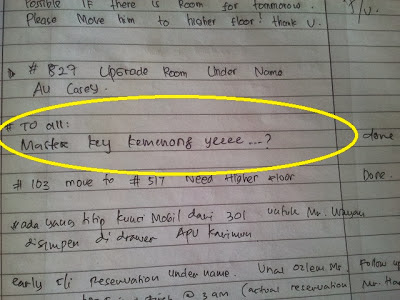 possible IF there is Room for tommorow.
Please Move him to higher floor? thank U.
# 829 Upgrade Room Under Name
Au Casey.
# TO all:
Master key kemenong yeeee ...?
done
# 103 move to # 517 Need Higher floor
Done.
# ada yang titip kunci Mobil dari 301 untuk Mr.
disimpen di drawer
early c/i reservation under name.
Follow up
@ 3 am (actual reservation